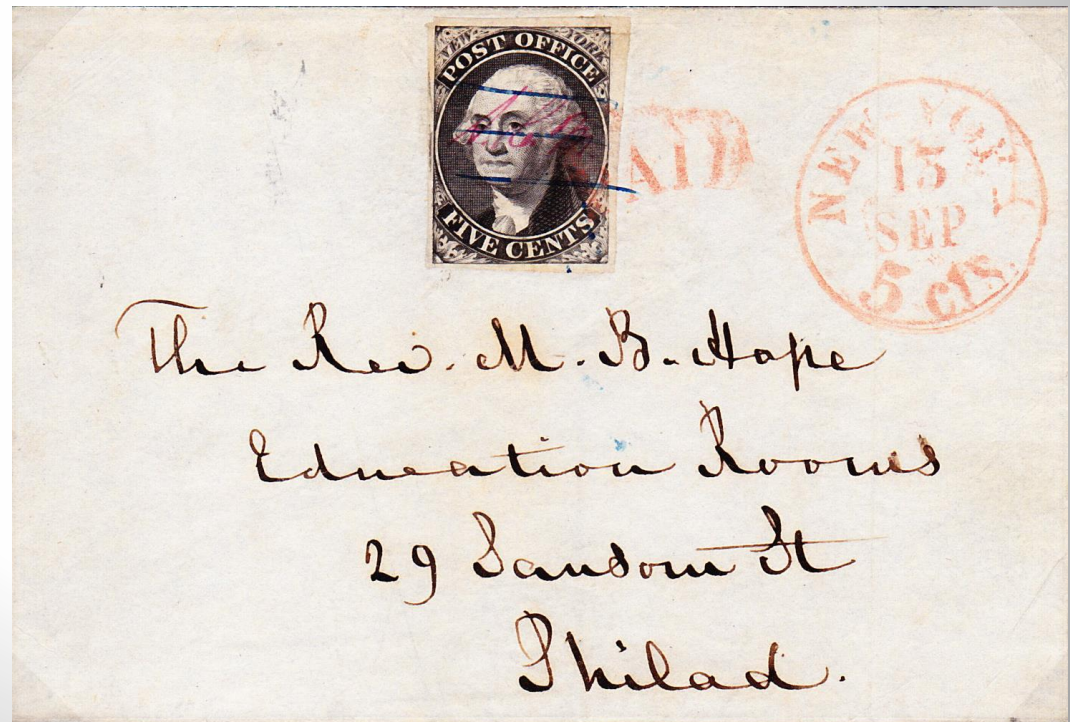 NEW YORK
POST OFFICE
FIVE CENTS
PAID
NEW YORK
15
SEP
5 cts.
The Rev. M. B. Hope
Education Rooms
29 Sansom St
Philad.